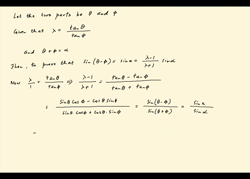 Let the two parts be θ and φ
Given that λ = tanθ / tanφ
and θ + φ = α
Then, to prove that sin(θ-φ) = sin x = λ-1 / λ+1 sin α
Now λ/1 = tanθ / tanφ ⇒ λ-1 / λ+1 = tanθ - tanφ / tanθ + tanφ
= sinθ cosφ - cosθ sinφ / sinθ cosφ + cosθ. sinφ = sin(θ-φ) / sin(θ+φ) = sin x / sin α
=